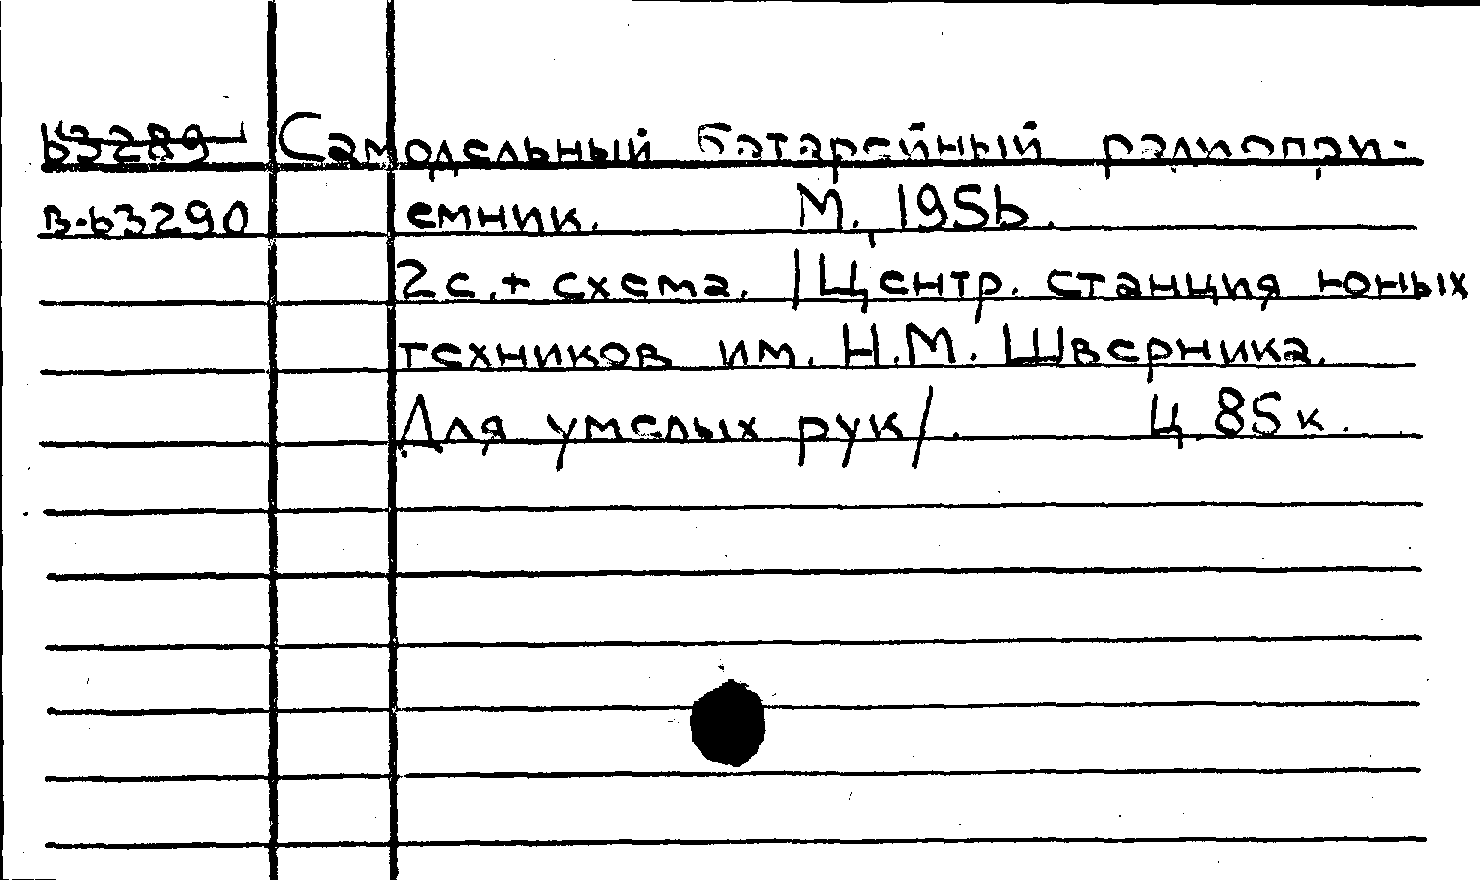 63289 Самодельный батарейный радиопри-
В-63290 емник. М., 1956.
2с.+ схема. /Центр. станция юных
техников им. Н.М. Шверника.
Для умелых рук/. Ц. 85к.